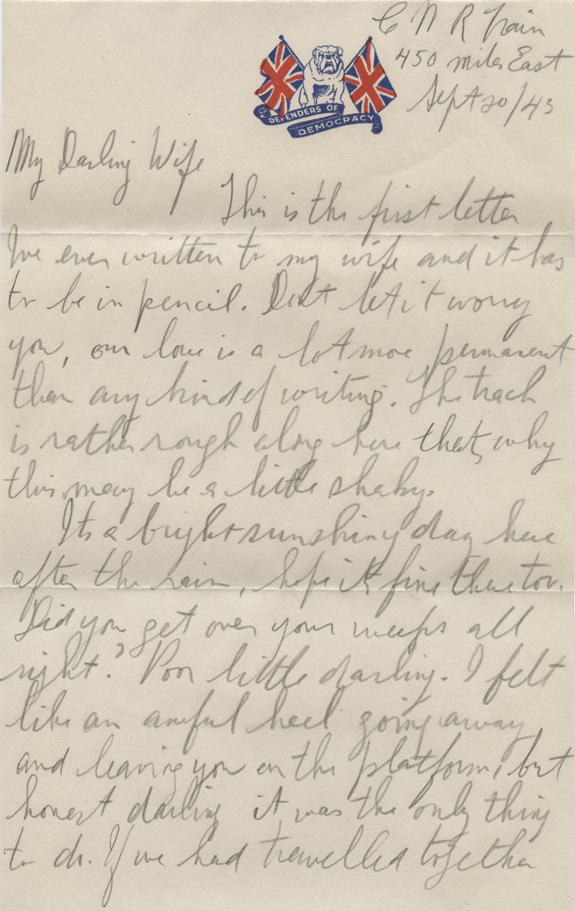 C N R Train
450 miles East
Sept 20/43
DEFENDERS OF
DEMOCRACY
My Darling Wife
This is the first letter
Ive ever written to my wife and it has
to be in pencil. Dont let it worry
you, our love is a lot more permanent
than any kind of writing. The track
is rather rough along here thats why
this may be a little shaky.
Its a bright sunshiny day here
after the rain, hope its fine there too.
Did you get over your weeps all
right? Poor little darling. I felt
like an awful heel going away
and leaving you on the platform, but
honest darling it was the only thing
to do. If we had travelled together